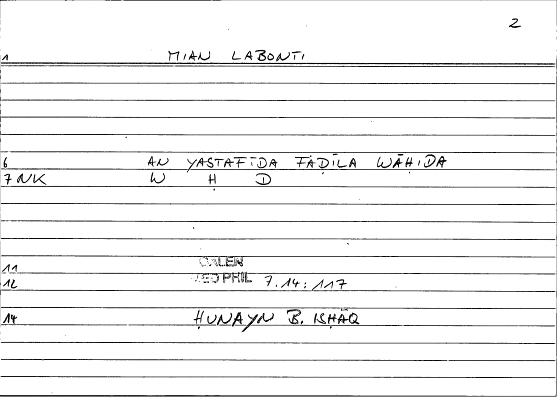 2
1 MIAN LABONTI
6 AN YASTAFĪDA FAḌĪLA WĀḤIDA
7 NK W Ḥ D
11 GALEN
12 MED PHIL 7.14: 117
14 ḤUNAYN B. ISḤĀQ